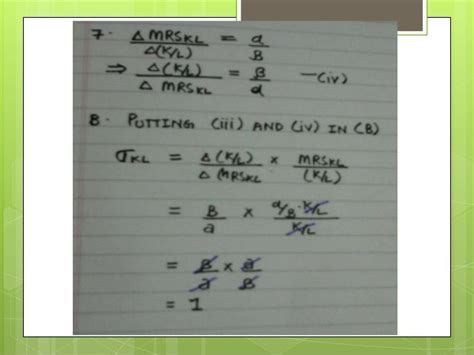 7. ΔMRSKL / Δ(K/L) = α / β
⇒ Δ(K/L) / ΔMRSKL = β / α —(iv)
8. PUTTING (iii) AND (iv) IN (B)
σKL = Δ(K/L) / ΔMRSKL × MRSKL / (K/L)
= β / α × α/β · K/L / K/L
= β / α × α / β
= 1